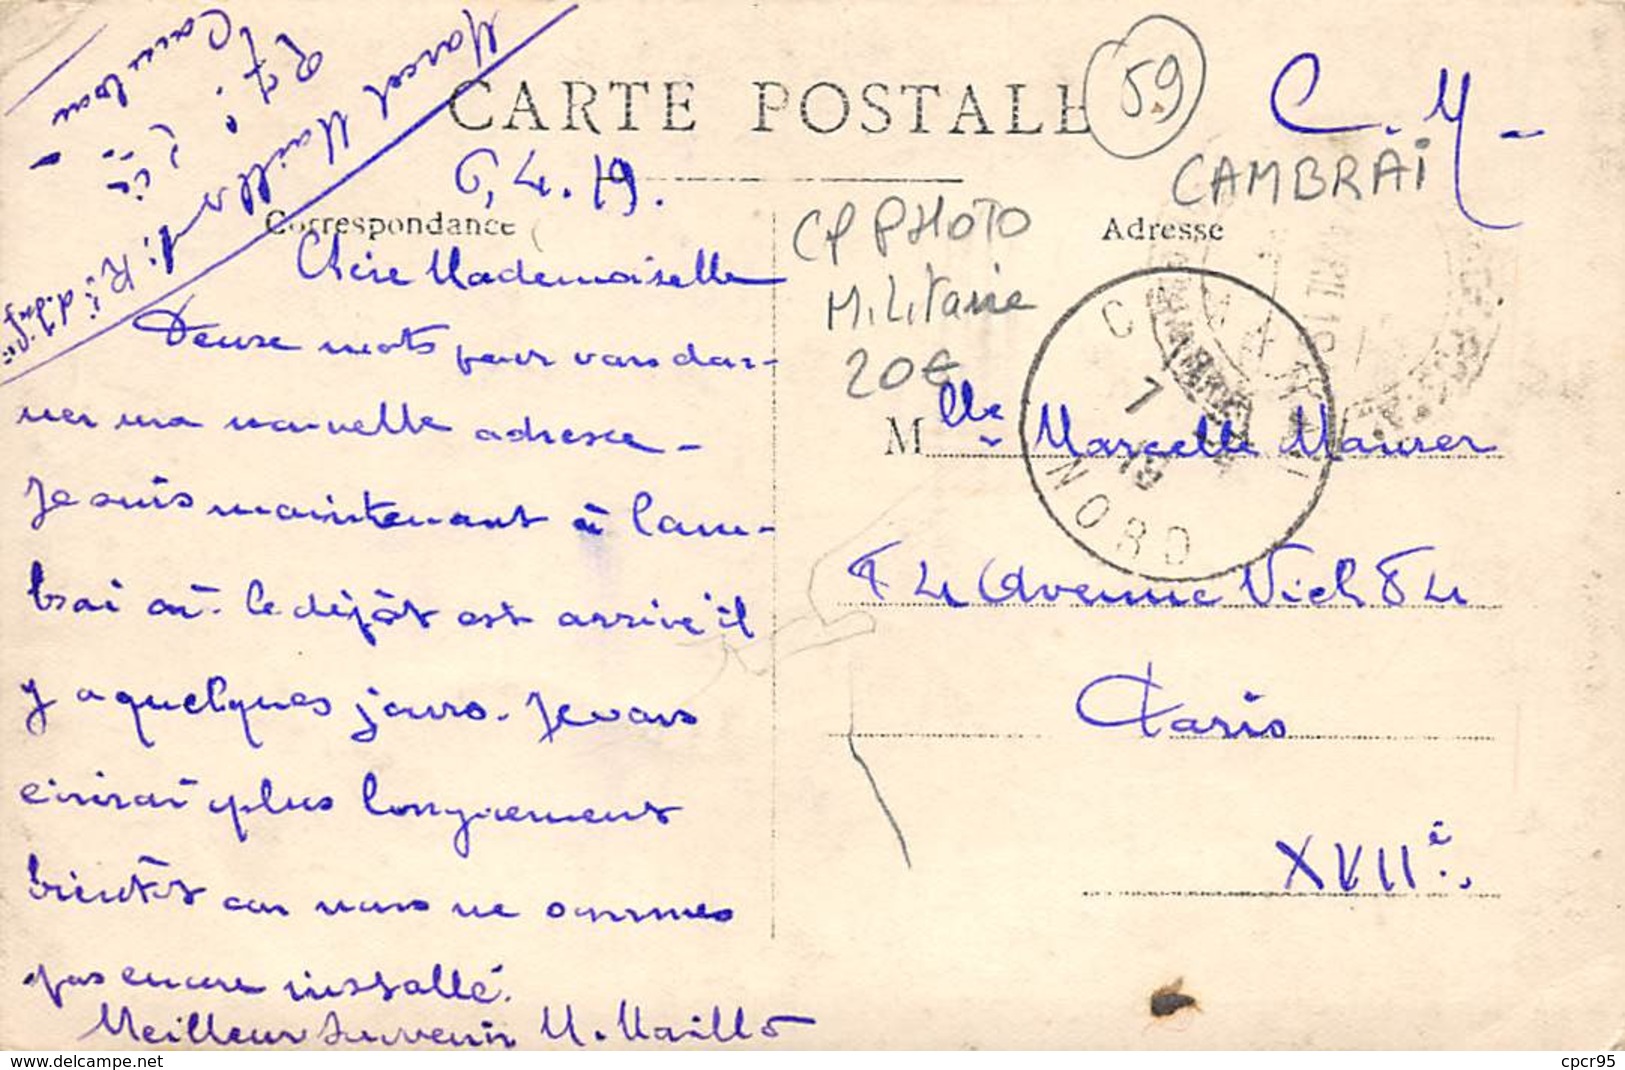 Marcel Maillo
1i. R. i. d. Inf. ie
27. Cie
Cambrai -
CARTE POSTALE
59
C. M -
CAMBRAI
6.4.19.
Correspondance
CP PHOTO
Militarie
20€
Adresse
Chère Mademoiselle
Deux mots pour vous don-
ner ma nouvelle adresse -
Je suis maintenant à Cam-
brai où le dépôt est arrivé il
y a quelques jours. Je vous
écrirai plus longuement
bientôt car nous ne sommes
pas encore installé.
Meilleur Souvenir M. Maillo
CAMBRAI
7
19
NORD
Mlle Marcelle Maurer
84 Avenue Viel 84
Paris
XVIIe.
cpcr95